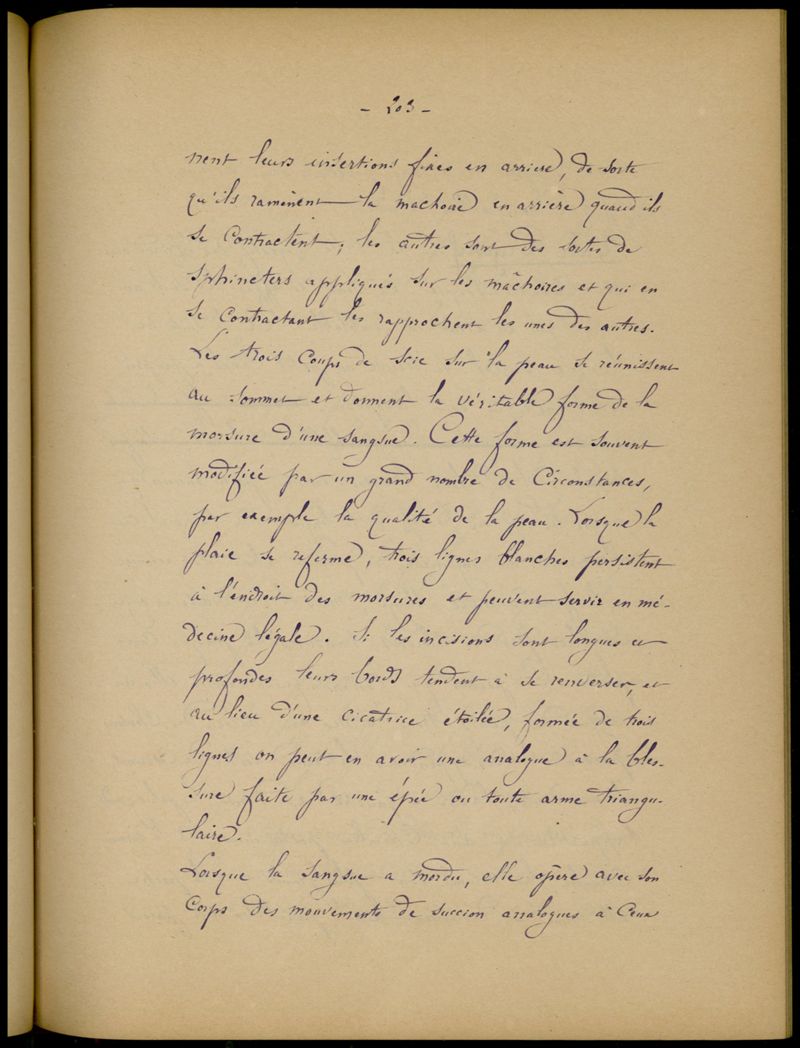 - 203 -
nent leurs insertions fixes en arrière, de sorte
qu'ils ramènent la machoire en arrière quand ils
se contractent; les autres sont des sortes de
sphincters appliqués sur les mâchoires et qui en
se contractant les rapprochent les unes des autres.
Les trois coups de scie sur la peau se réunissent
au sommet et donnent la véritable forme de la
morsure d'une sangsue. Cette forme est souvent
modifiée par un grand nombre de circonstances,
par exemple la qualité de la peau. Lorsque la
plaie se referme, trois lignes blanches persistent
à l'endroit des morsures et peuvent servir en mé-
decine légale. Si les incisions sont longues et
profondes leurs bords tendent à se renverser, et
au lieu d'une cicatrice étoilée, formée de trois
lignes on peut en avoir une analogue à la bles-
sure faite par une épée ou toute arme triangu-
laire.
Lorsque la sangsue a mordu, elle opère avec son
corps des mouvements de succion analogues à ceux